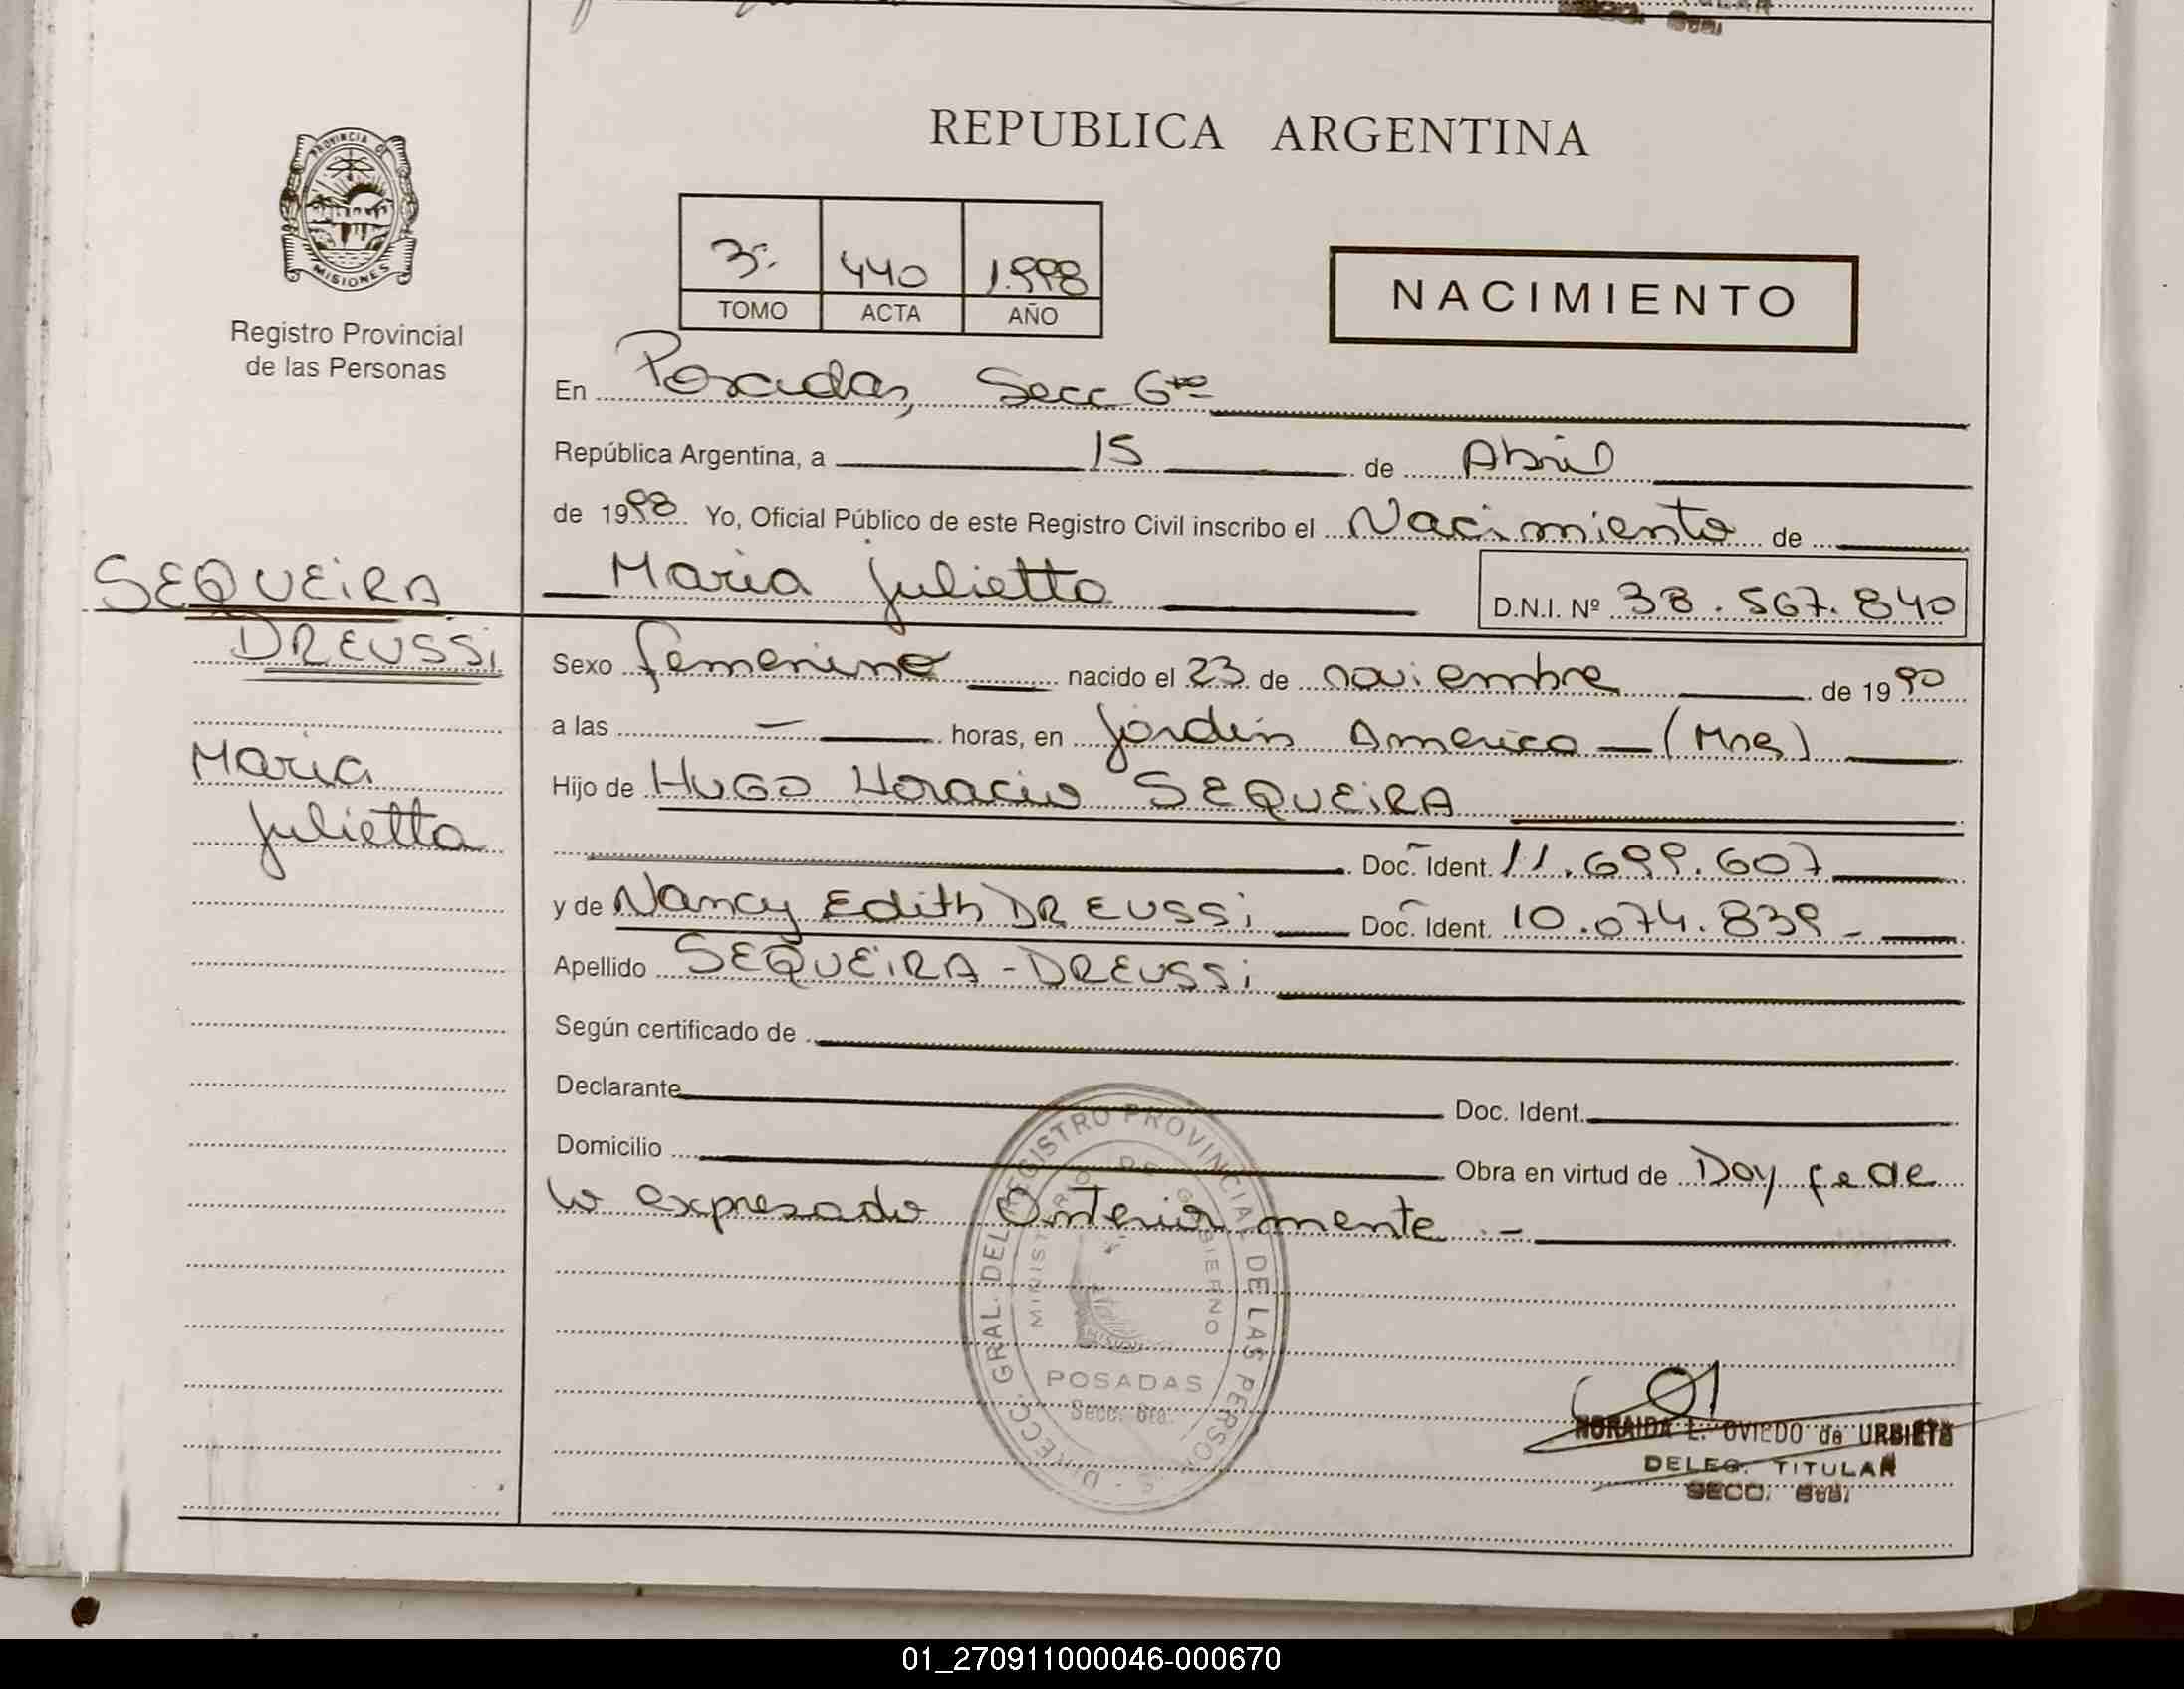 REPUBLICA ARGENTINA
PROVINCIA DE
MISIONES
Registro Provincial
de las Personas
3º 440 1.998
TOMO ACTA AÑO
NACIMIENTO
En Posadas, Secc 6ta
República Argentina, a 15 de Abril
de 1998 Yo, Oficial Público de este Registro Civil inscribo el Nacimiento de
Maria Julietta D.N.I. Nº 38.567.840
SEQUEIRA
DREUSSi
Maria
Julietta
Sexo femenino nacido el 23 de noviembre de 1990
a las — horas, en Jardin America — (Mns)
Hijo de HUGO Horacio SEQUEiRA
Doc. Ident. 11.699.607
y de Nancy Edith DREUSSi Doc. Ident. 10.074.839 -
Apellido SEQUEiRA - DREUSSi
Según certificado de
Declarante Doc. Ident.
Domicilio Obra en virtud de Doy fe de
lo expresado anteriormente.-
DIRECC. GRAL. DEL REGISTRO PROVINCIAL DE LAS PERSONAS
MINISTERIO DE GOBIERNO
MISIONES
POSADAS
Secc. 6ta.
NORAIDA L. OVIEDO de URBIETA
DELEG. TITULAR
SECC. 6ta.
01_270911000046-000670